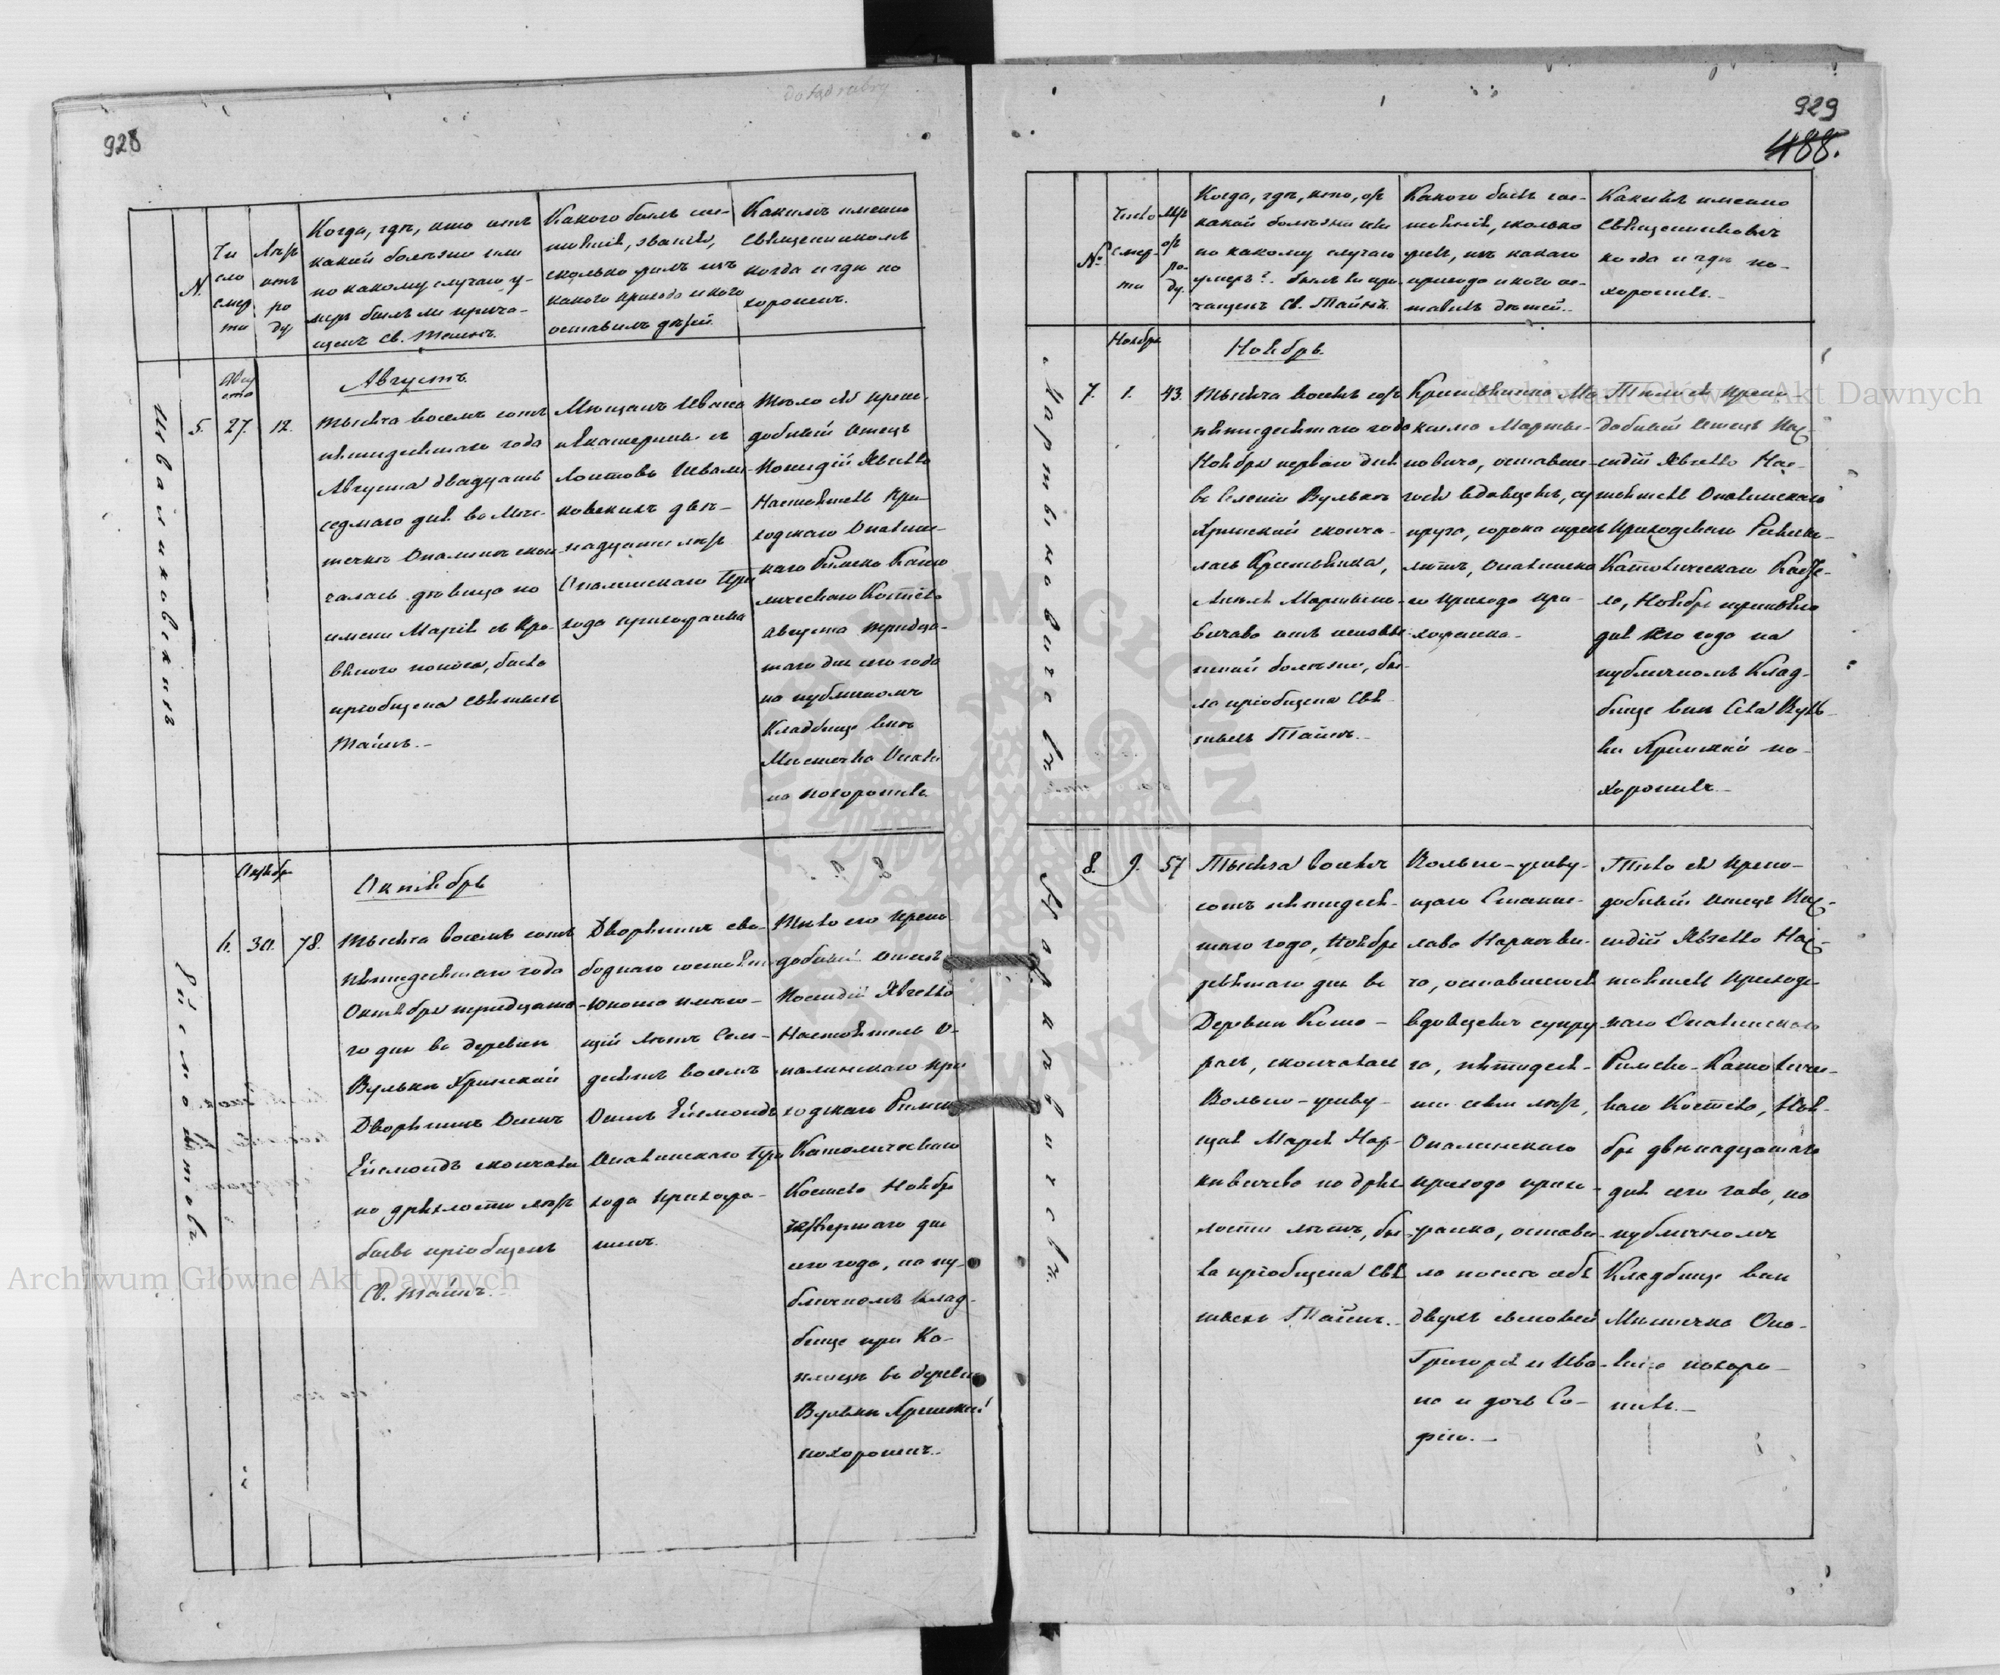 928
№
Чи
сло
смер
ти
Лѣтъ
отъ
ро
ду
Когда, гдѣ, кто отъ
какой болѣзни или
по какому случаю у-
меръ былъ ли прича-
щенъ Св. Таинъ.
Какого былъ со-
стоянія, званія,
сколько римъ изъ
какого прихода и кого
оставилъ дѣтей
Какимъ именно
Священникомъ
когда и гдѣ по
хороненъ.
Августъ
Ивашковскихъ
5. 27. 12.
Тысяча восемь сотъ
пятидесятаго года
Августа двадцать
седмаго дня въ Мѣс-
течкѣ Опалинѣ скон
чалась дѣвица по
имени Марія съ кро-
ваваго поноса, была
пріобщена Святыхъ
Таинъ.-
Мѣщанъ Ивана
и Екатерины съ
Иваш-
ковскихъ двѣ-
надцати лѣтъ
Опалинскаго При
хода прихожанка
Тѣло ея препо
добный Отецъ
Настоятель При-
ходскаго Опалин-
скаго Римско Като
лическаго Костела
Августа тридца-
таго дня сего года
на публичномъ
Кладбищѣ внѣ
Мистечка Опали
на похоронилъ
Октябр
Октябрь
6. 30. 78.
Тысяча восемь сотъ
пятидесятаго года
Октября тридцата-
го дня въ деревни
Вульки Хрипской
Дворянинъ Осипъ
Ейсмондъ скончался
по дряхлости лѣтъ
бывъ пріобщенъ
Св. Таинъ.
Дворянинъ сво-
боднаго состоянія
юноша имѣю-
щій лѣтъ Сем-
десятъ восемь
Осипъ Ейсмондъ
Опалинскаго При
хода прихожа-
нинъ.
Тѣло его препо
добный отецъ
Настоятель О-
палинскаго При
ходскаго Римско
Католическаго
Костела Ноября
четвертаго дня
сего года, на пу-
бличномъ Клад-
бищѣ при Ка-
плицѣ въ деревни
Вульки Хрипской
похороненъ.
929
488.
№
Число
смер-
ти
Лѣтъ
отъ
ро-
ду.
Когда, гдѣ, кто, отъ
какой болѣзни или
по какому случаю
умеръ? былъ ли при-
чащенъ Св. Тайнъ.
Какого былъ сос-
тоянія, сколько
римъ, изъ какого
прихода и кого ос-
тавилъ дѣтей.
Какимъ именно
Священникомъ
когда и гдѣ по-
хороненъ.
Ноябрь
Ноябрь.
Мартыновичева
7. 1. 43.
Тысяча восемь сотъ
пятидесятаго года
Ноября перваго дня
въ Селеніи Вульки
Хрипской сконча-
лась Крестьянка,
Мартыно-
вичева отъ
болѣзни, бы-
ла пріобщена Свя
тыхъ Тайнъ.-
Крестьянина Ма
Марты-
новича, оставше-
гося вдовцемъ, су
пруга, сорока трехъ
лѣтъ, Опалинска
го прихода при-
хожанка.-
Тѣло ея препо
добный Отецъ
Нас-
тоятель Опалинскаго
Приходскаго Римско-
Католическаго Косте-
ла, Ноября третьяго
дня сего года на
публичномъ Клад-
бищѣ внѣ Села Вуль-
ки Хрипской по-
хоронилъ.-
8. 9. 57
Тысяча восемь
сотъ пятидеся-
таго года, Ноября
девятаго дня въ
Деревни
скончалась
Вольно-живу-
щая Марія
по дрях
лости лѣтъ, бы-
ла пріобщена Свя
тыхъ Тайнъ.
Вольно-живу-
щаго Станис-
лава
ча, оставшагося
вдовцемъ супру
га, пятидеся-
ти семи лѣтъ,
Опалинскаго
прихода прихо-
жанка, остави-
ла послѣ себя
двухъ сыновей
Григорія и Ива-
на и дочь Со-
фію.-
Тѣло ея препо-
добный отецъ
Нас-
тоятель приход-
скаго Опалинскаго
Римско-Католичес-
каго Костела, Ноя-
бря двѣнадцатаго
дня сего года, на
публичномъ
Кладбищѣ внѣ
Мистечка Опа-
лина похоро-
нилъ.-
Archiwum Główne Akt Dawnych
Archiwum Główne Akt Dawnych